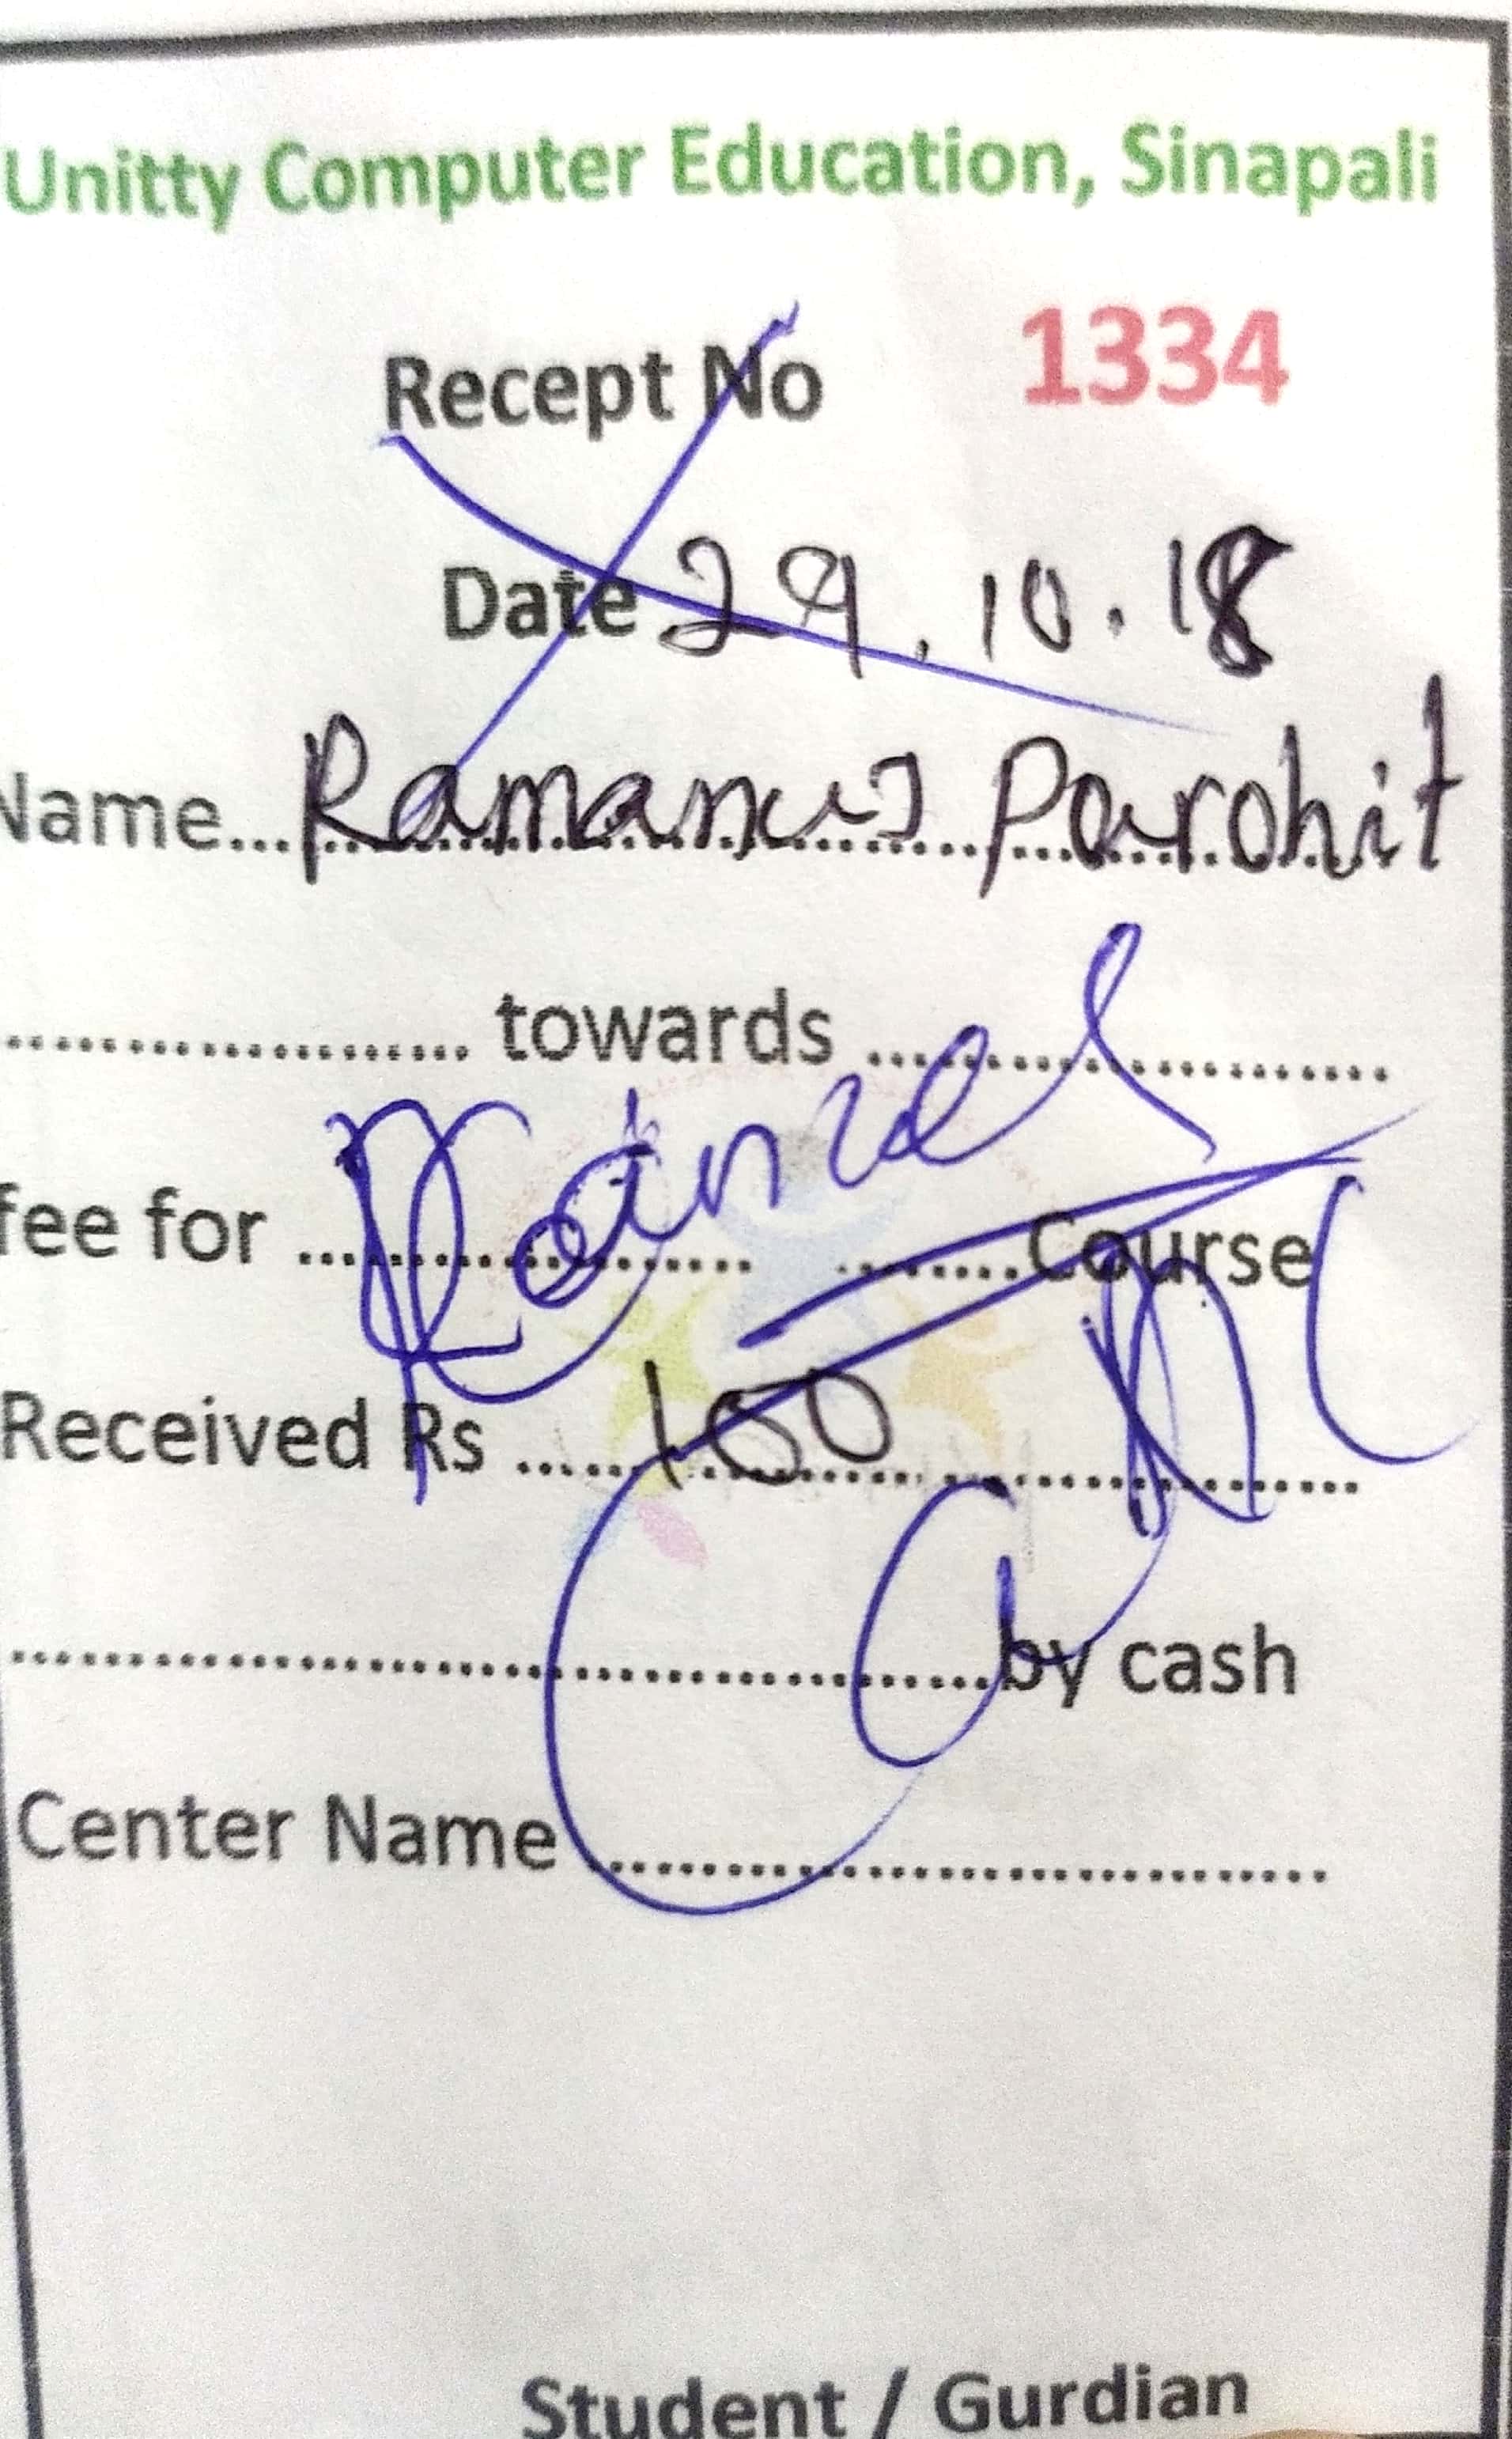 Unitty Computer Education, Sinapali
Recept No 1334
Date 29.10.18
Name... Ramanuj Purohit
.................... towards ....................
fee for .................... ........Course
Received Rs ...... 100 ....................
........................................by cash
Center Name ..............................
Student / Gurdian